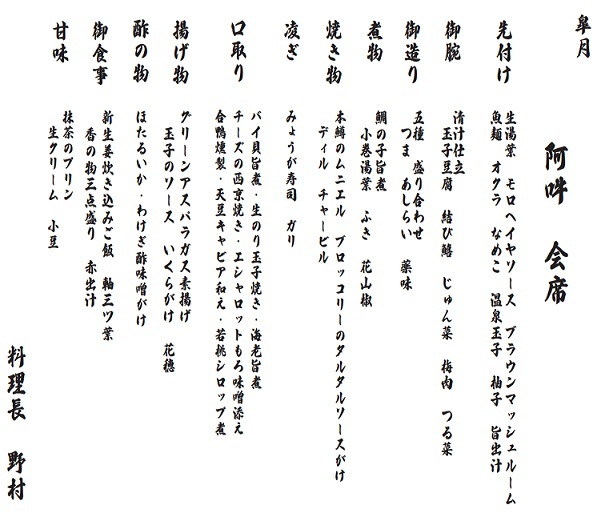 皐月
阿吽 会席
先付け
生湯葉 モロヘイヤソース ブラウンマッシュルーム
魚麺 オクラ なめこ 温泉玉子 柚子 旨出汁
御腕
清汁仕立
玉子豆腐 結び鱚 じゅん菜 梅肉 つる菜
御造り
五種 盛り合わせ
つま あしらい 薬味
煮物
鯛の子旨煮
小巻湯葉 ふき 花山椒
焼き物
本鱒のムニエル ブロッコリーのタルタルソースがけ
ディル チャービル
凌ぎ
みょうが寿司 ガリ
口取り
バイ貝旨煮・生のり玉子焼き・海老旨煮
チーズの西京焼き・エシャロットもろ味噌添え
合鴨燻製・天豆キャビア和え・若桃シロップ煮
揚げ物
グリーンアスパラガス素揚げ
玉子のソース いくらがけ 花穂
酢の物
ほたるいか・わけぎ酢味噌がけ
御食事
新生姜炊き込みご飯 軸三ツ葉
香の物三点盛り 赤出汁
甘味
抹茶のプリン
生クリーム 小豆
料理長 野村